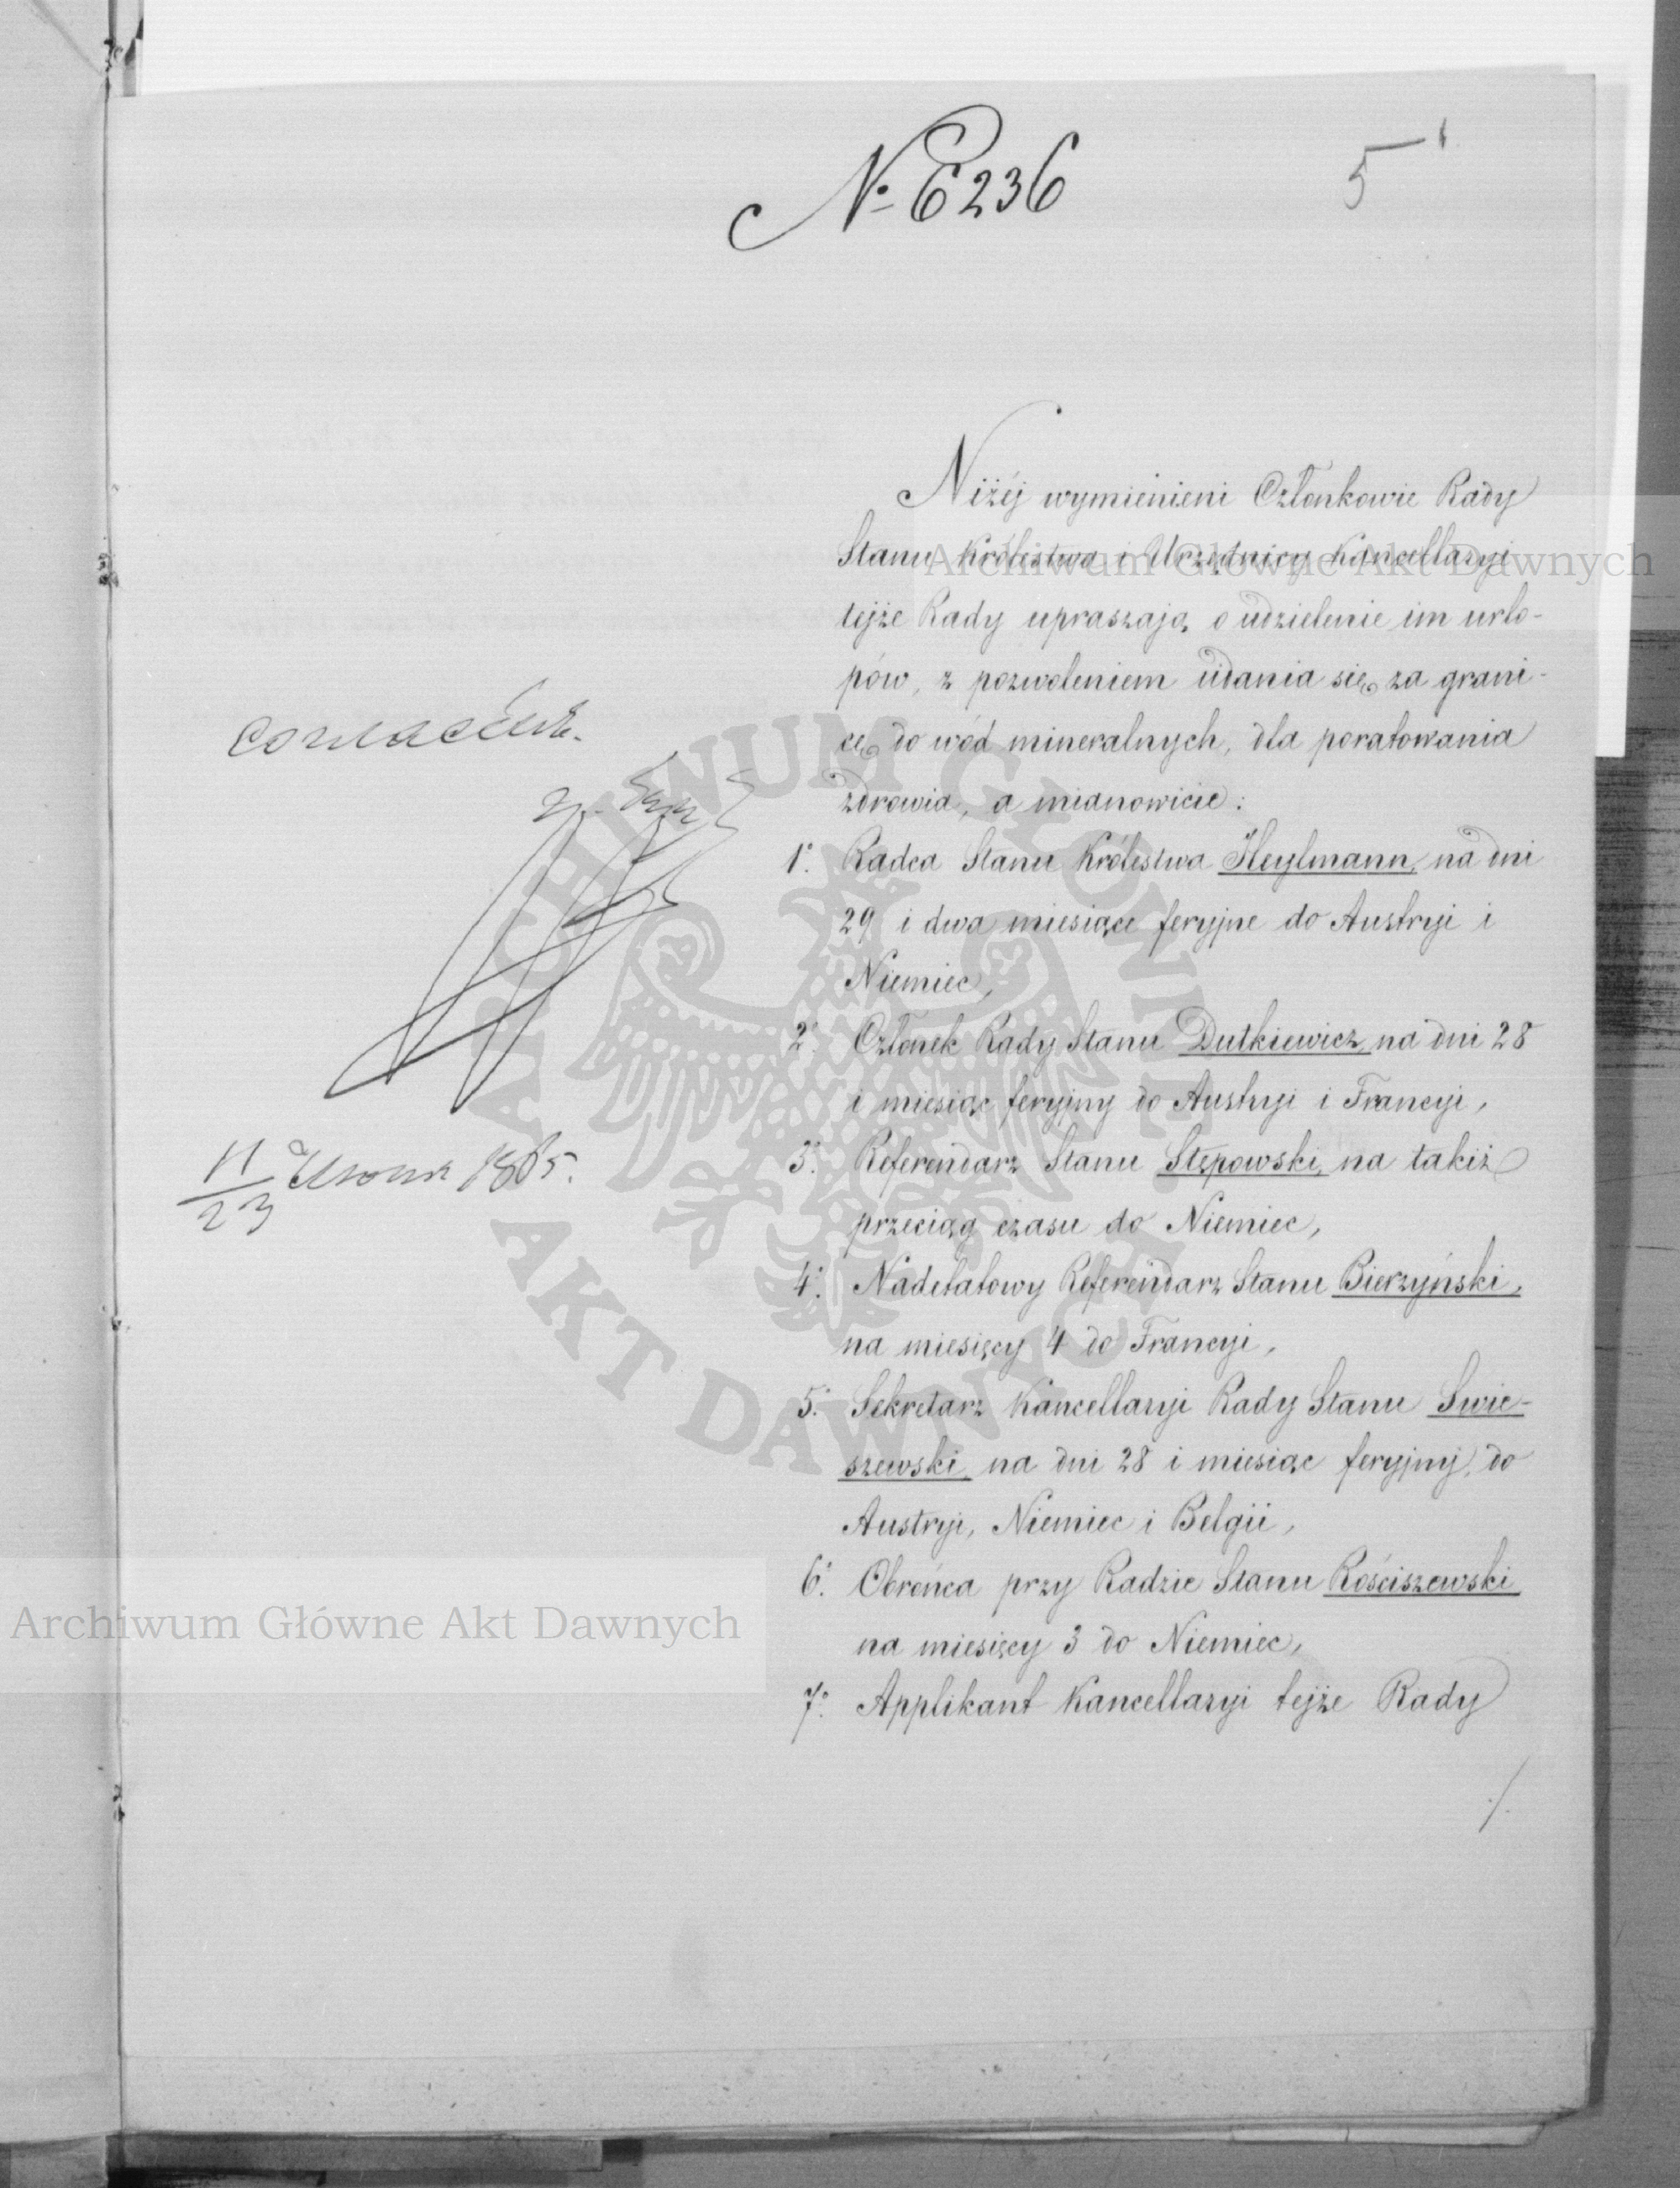 № 6236
5
Niżéj wymienieni Członkowie Rady
Stanu Królestwa i Urzędnicy Kancellaryi
tejże Rady upraszają o udzielenie im urlo-
pów, z pozwoleniem udania się za grani-
cę do wód mineralnych, dla poratowania
zdrowia, a mianowicie:
1º. Radca Stanu Królestwa Heylmann, na dni
29 i dwa miesiące feryjne do Austryi i
Niemiec,
2º. Członek Rady Stanu Dutkiewicz, na dni 28
i miesiąc feryjny do Austryi i Francyi,
3º. Referendarz Stanu Stępowski, na takiż
przeciąg czasu do Niemiec,
4º. Nadetatowy Referendarz Stanu Bierzyński,
na miesięcy 4 do Francyi,
5º. Sekretarz Kancellaryi Rady Stanu Swie-
szewski, na dni 28 i miesiąc feryjny, do
Austryi, Niemiec i Belgii,
6º. Obrońca przy Radzie Stanu Rościszewski
na miesięcy 3 do Niemiec,
7º. Applikant Kancellaryi tejże Rady
./.
Согласенъ.
11/23 Июня 1865.
Archiwum Główne Akt Dawnych
Archiwum Główne Akt Dawnych
ARCHIWUM GŁÓWNE AKT DAWNYCH